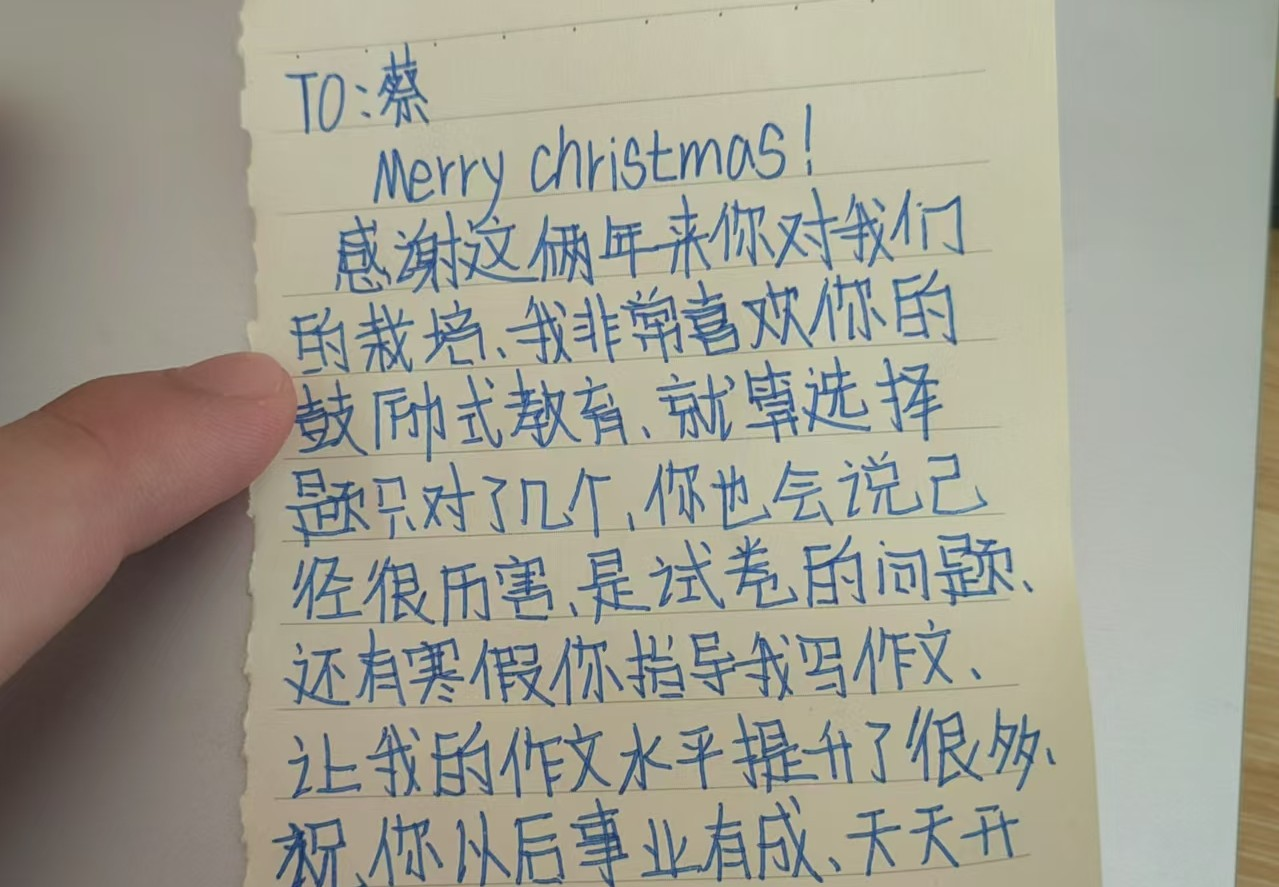 TO:蔡
Merry christmas!
感谢这俩年来你对我们
的栽培、我非常喜欢你的
鼓励式教育、就算选择
题只对了几个,你也会说己
经很厉害、是试卷的问题、
还有寒假你指导我写作文、
让我的作文水平提升了很多、
祝、你以后事业有成、天天开